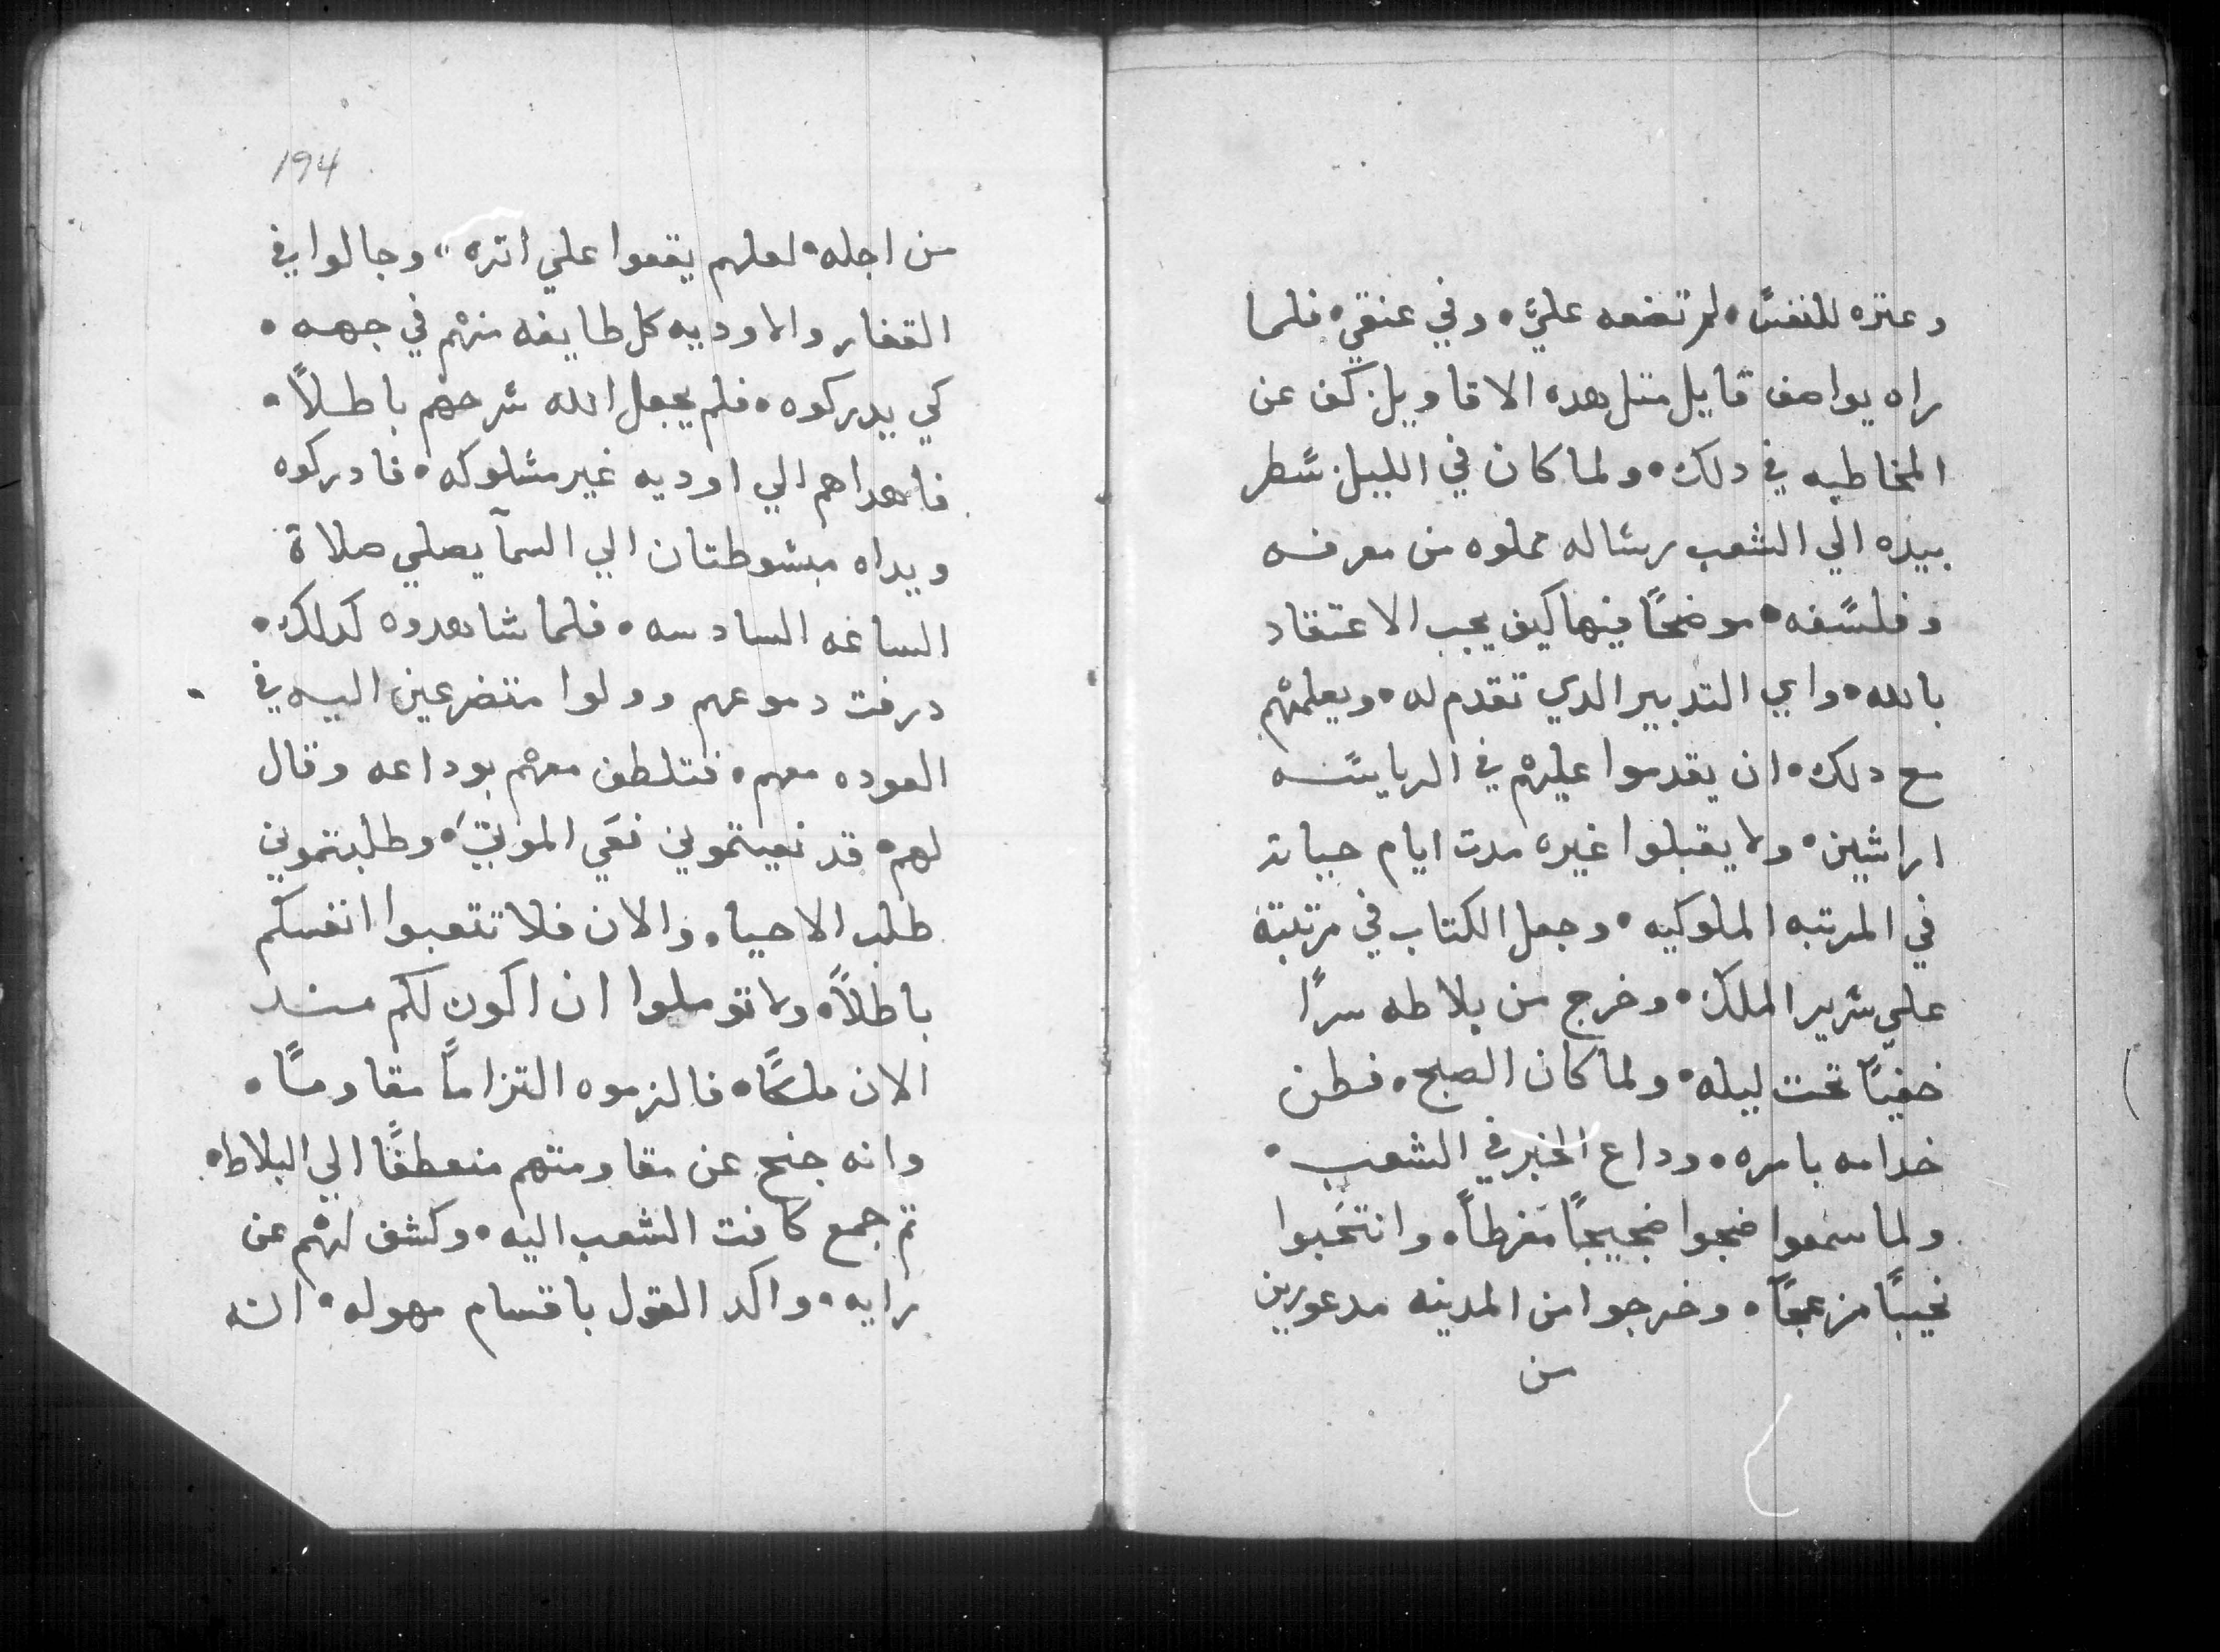 وعتره للنفس، لم تضعه عليَّ، وفي عنقي، فلما
راه يواصف قايل متل هده الاقاويل. كف عن
المخاطبه في دلك، ولما كان في الليل. سطر
بيده الي الشعب رساله مملوه من معرفه
وفلسفه، موضحًا فيها كيف يجب الاعتقاد
بالله، واي التدبير الدي تقدم له، ويعلمهم
مع دلك، ان يقدموا عليهم في الرياسه
اراشين، ولا يقبلوا غيره مدت ايام حياته
في المرتبه الملوكيه، وجعل الكتاب في مرتبته
علي سرير الملك، وخرج من بلاطه سرًا
خفيًا تحت ليله، ولما كان الصبح، فطن
خدامه بامره، وداع الخبر في الشعب،
ولما سمعوا ضجوا ضجيجًا مفرطًا، وانتحبوا
نحيبًا مزعجًا، وخرجوا من المدينه مدعورين
من
194
من اجله، لعلهم يقعوا علي اتره، وجالوا في
القفار والاوديه كل طايفه منهم في جهه،
كي يدركوه، فلم يجعل الله سرحهم باطلاً،
فاهداهم الي اوديه غير مسلوكه، فادركوه
ويداه مبسوطتان الي السمآ يصلي صلاة
الساعه السادسه، فلما شاهدوه كدلك،
درفت دموعهم وولوا متضرعين اليه في
العوده معهم، فتلطف معهم بوداعه وقال
لهم، قد نعيتموني نعَي الموتيَ، وطلبتموني
طلب الاحيا، والان فلا تتعبوا انفسكم
باطلاً، ولا توملوا ان اكون لكم مند
الان ملكًا، فالزموه التزامًا مقاومًا،
وانه جنح عن مقاومتهم منعطفًا الي البلاط،
تم جمع كافت الشعب اليه، وكشف لهم عن
رايه، واكد القول باقسام مهوله، انه